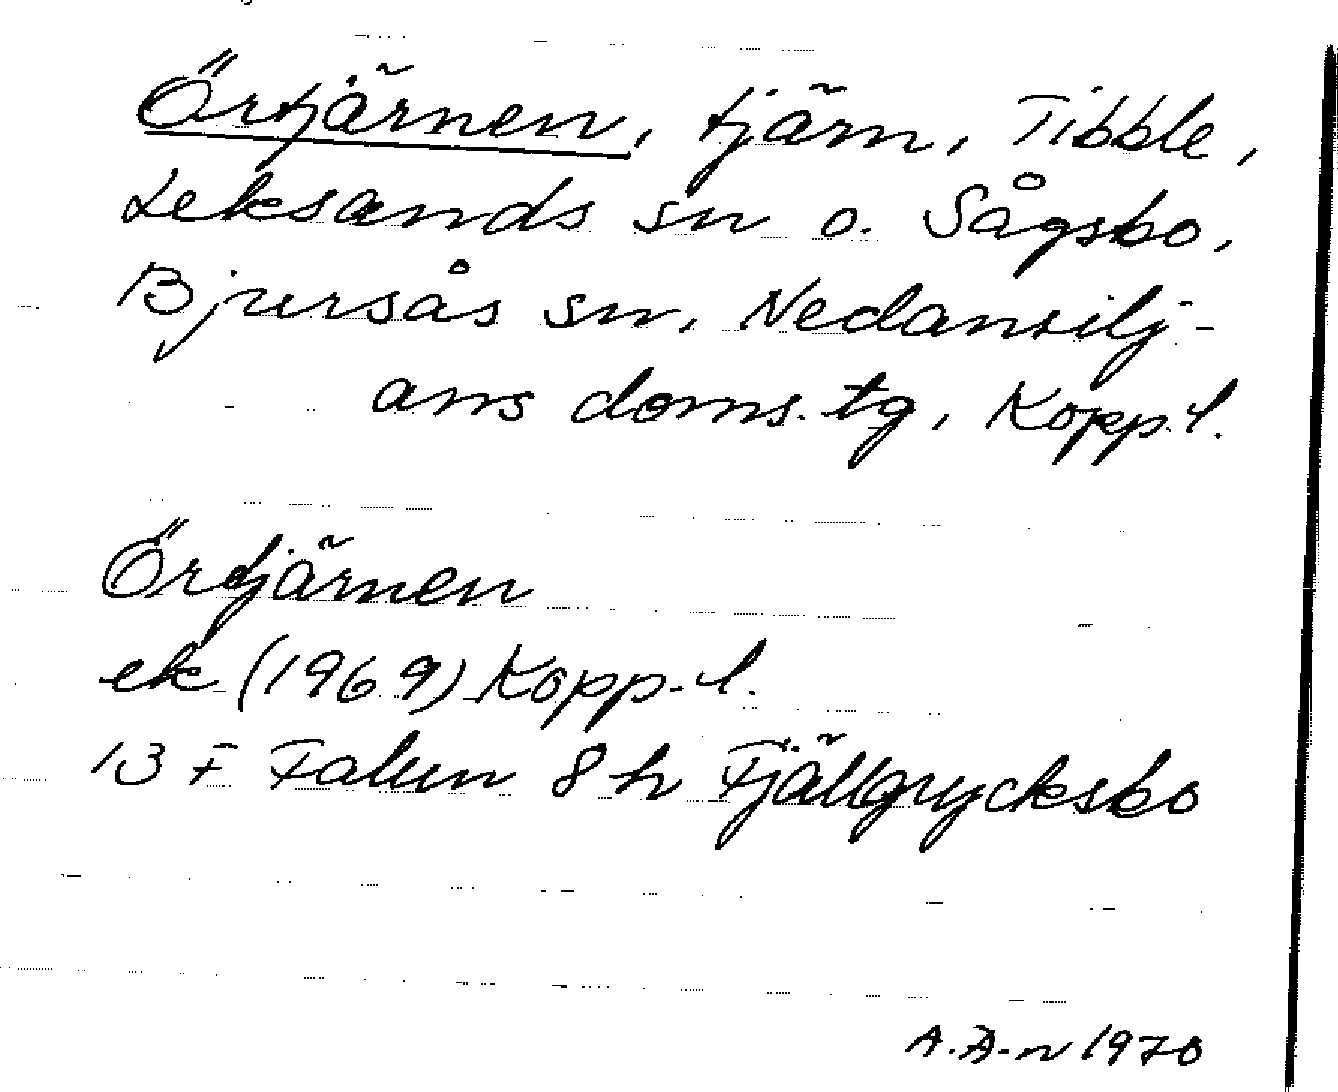 Örtjärnen, tjärn, Tibble,
Leksands sn o. Sågsbo,
Bjursås sn, Nedansilj-
ans doms. tg, Kopp. l.
Örtjärnen
ek (1969) Kopp. l.
13 F Falun 8 h Fjällgrycksbo
A. Ä-n 1970